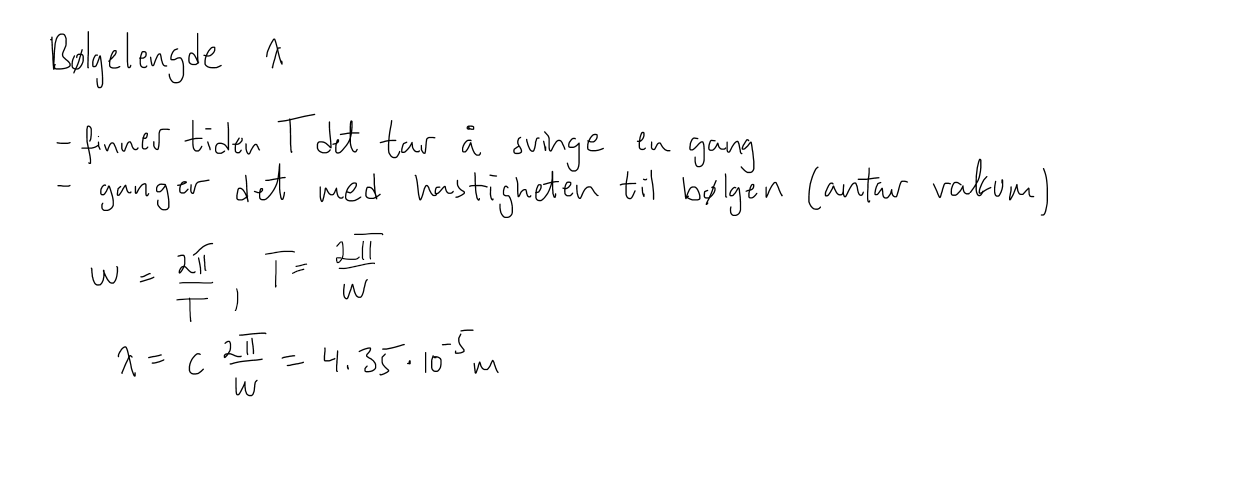 Bølgelengde λ
- finner tiden T det tar å svinge en gang
- ganger det med hastigheten til bølgen (antar vakum)
w = 2π/T, T = 2π/w
λ = c 2π/w = 4.35·10⁻⁵ m